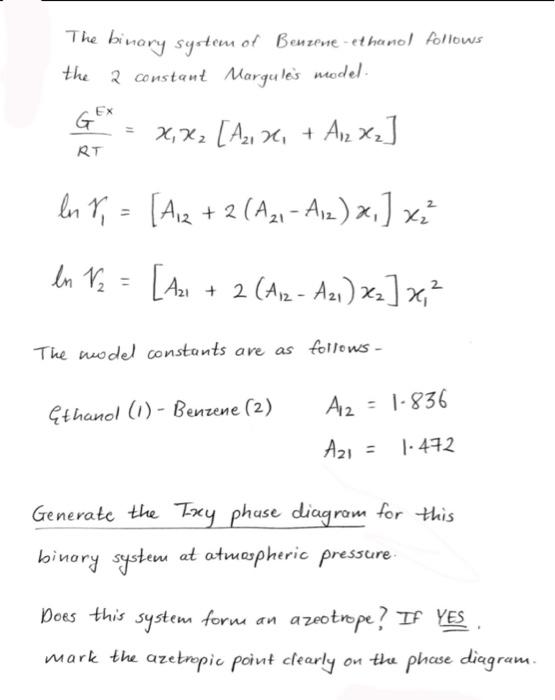 The binary system of Benzene-ethanol follows
the 2 constant Margule's model.
G^Ex / RT = x₁x₂ [A₂₁ x₁ + A₁₂ x₂]
ln γ₁ = [A₁₂ + 2 (A₂₁ - A₁₂) x₁] x₂²
ln γ₂ = [A₂₁ + 2 (A₁₂ - A₂₁) x₂] x₁²
The model constants are as follows -
Ethanol (1) - Benzene (2) A₁₂ = 1.836
A₂₁ = 1.472
Generate the Txy phase diagram for this
binary system at atmospheric pressure.
Does this system form an azeotrope? If YES,
mark the azetropic point clearly on the phase diagram.